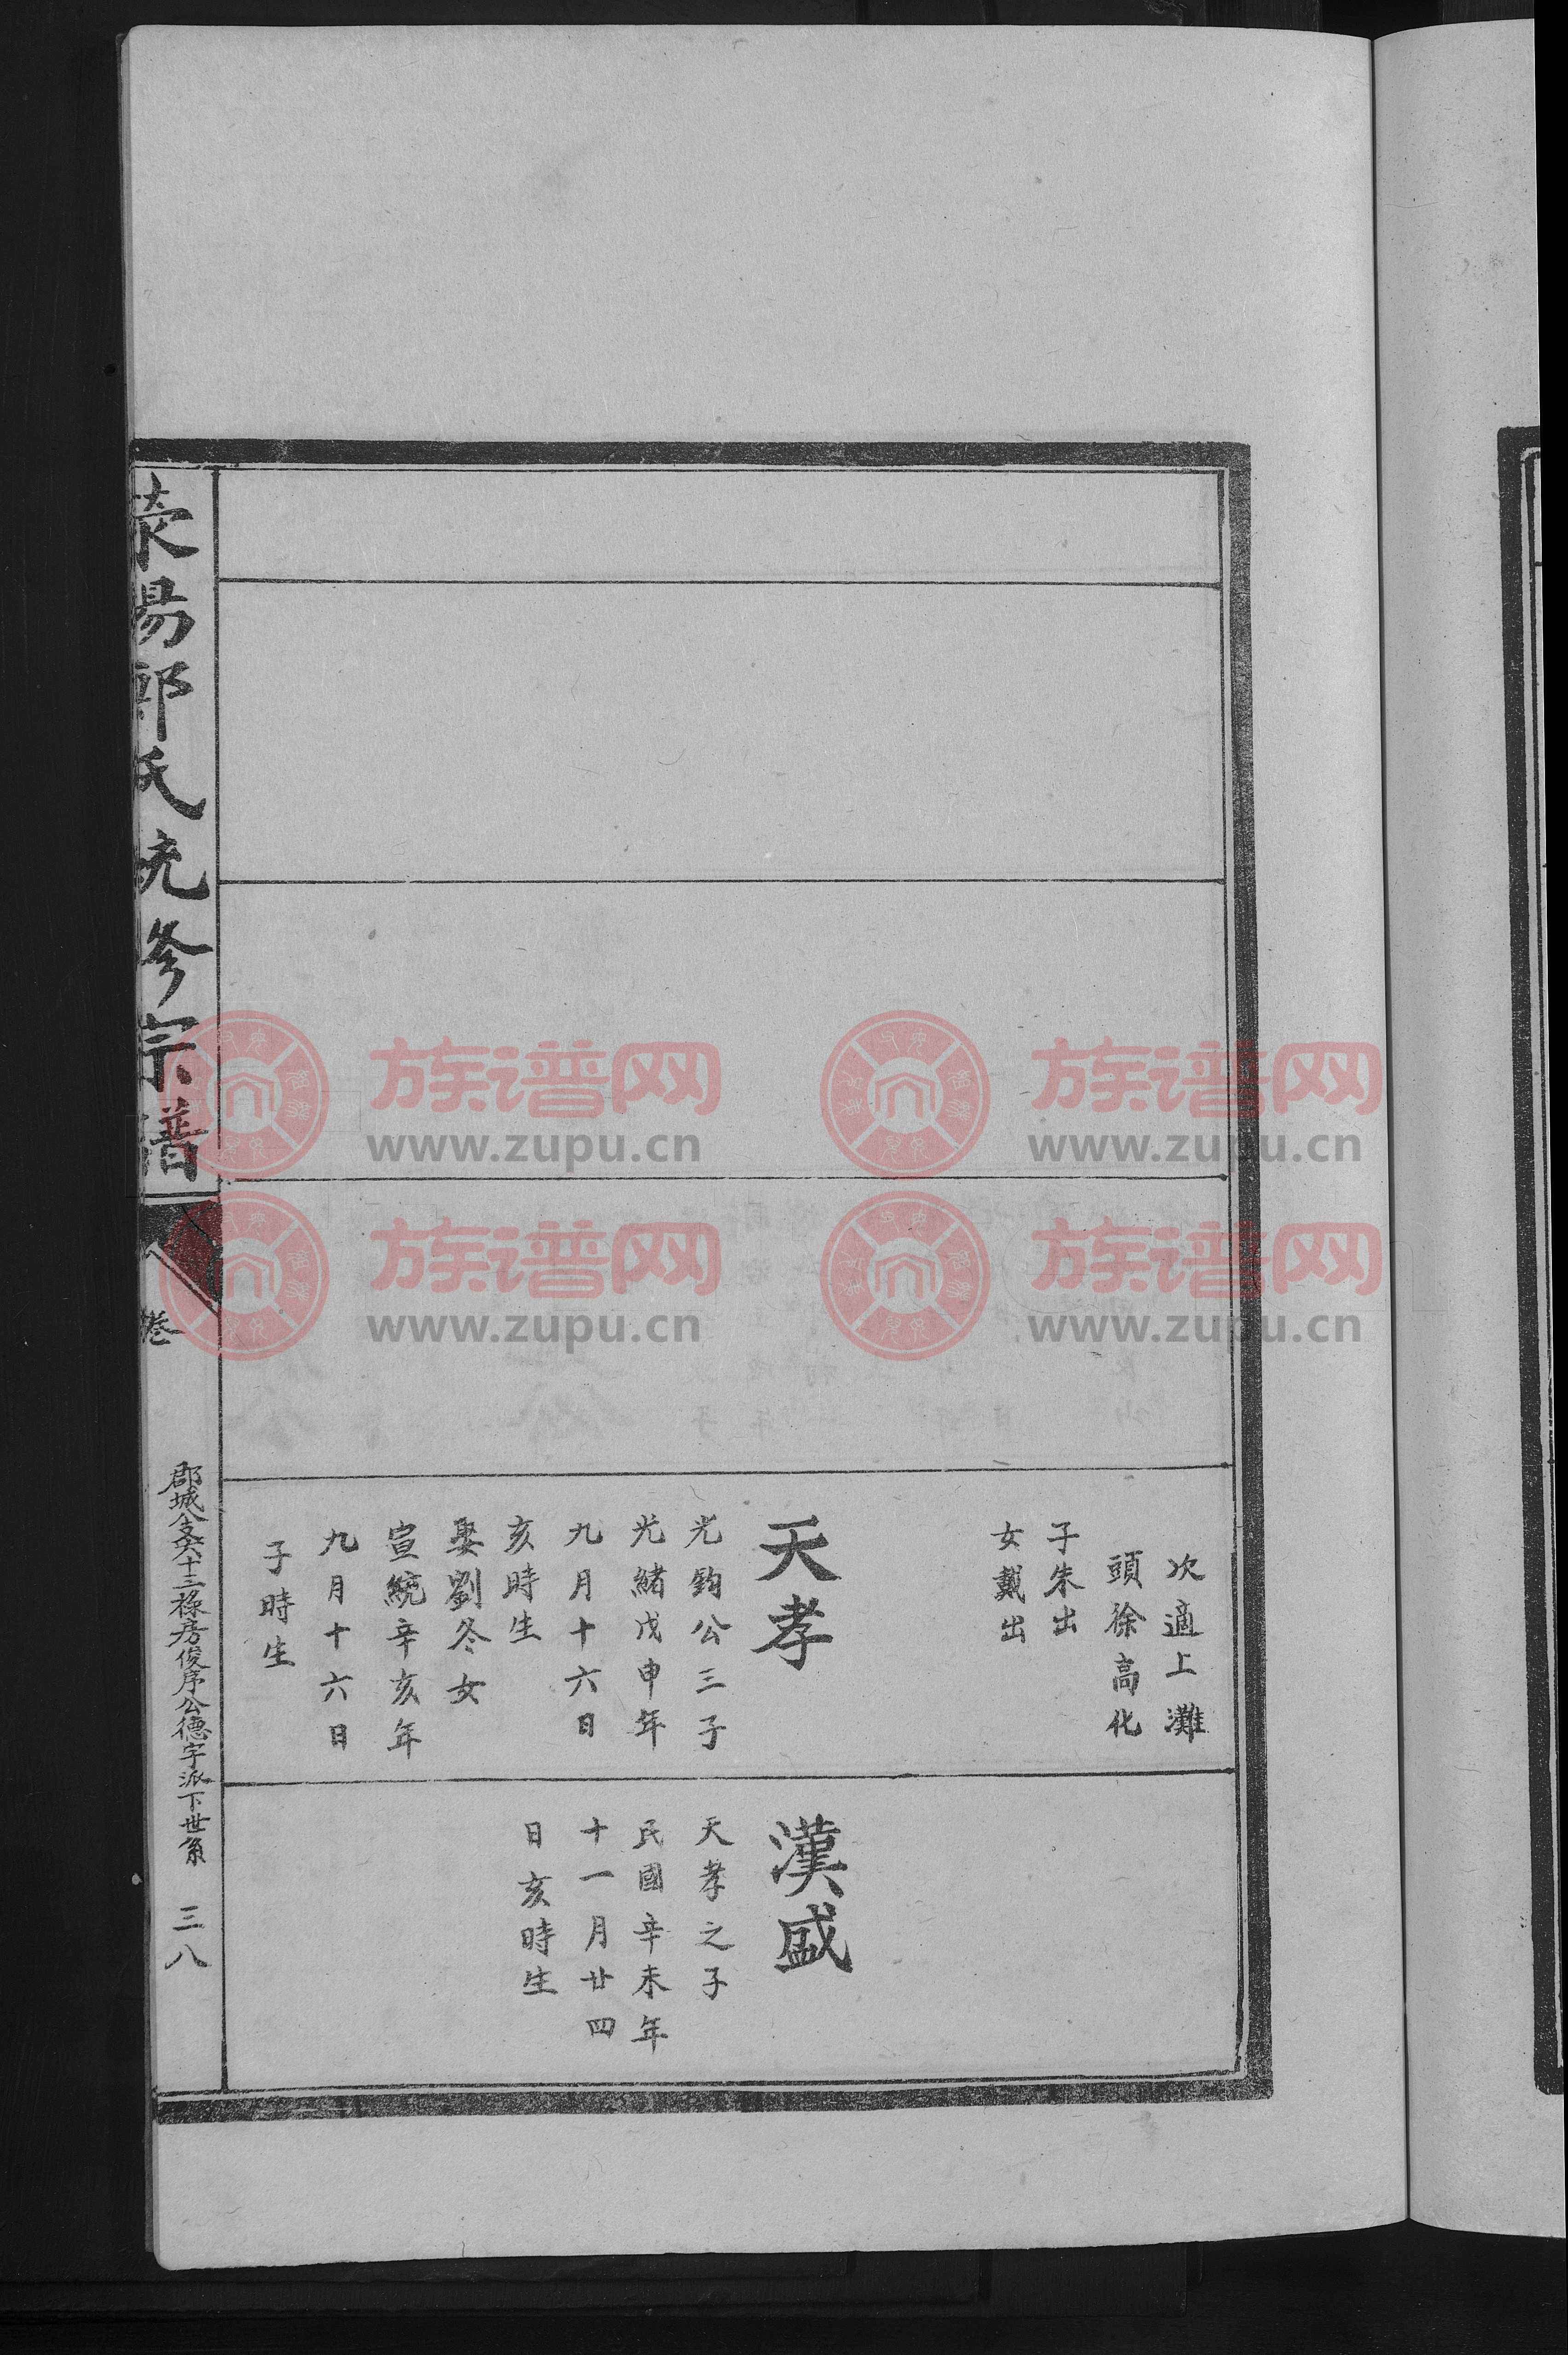 次適上灘
頭徐高化
子朱出
女戴出
天孝
光鈞公三子
光緒戊申年
九月十六日
亥時生
娶劉冬女
宣統辛亥年
九月十六日
子時生
漢盛
天孝之子
民國辛未年
十一月廿四
日亥時生
滎陽鄭氏統修宗譜
卷
郡城分支六十三祿房俊序公德宇派下世系
三八
族谱网
www.zupu.cn
族谱网
www.zupu.cn
族谱网
www.zupu.cn
族谱网
www.zupu.cn